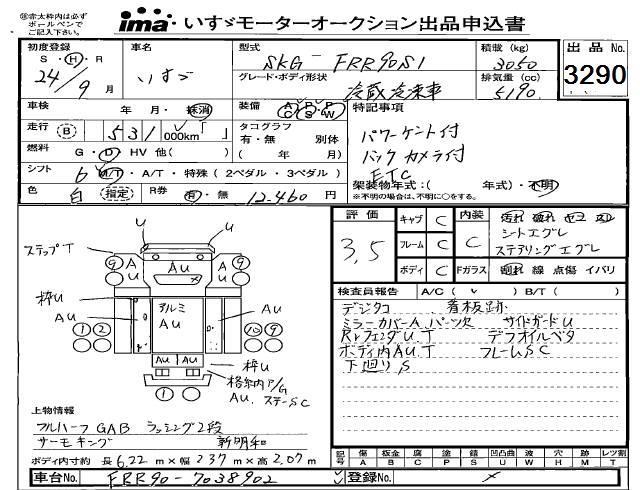 ㊟太枠内は必ず
ボールペンで
ご記入下さい。
ima いすゞモーターオークション出品申込書
初度登録 車名 型式 積載 (kg) 出品No.
S・H・R SKG-FRR90S1 3050 3290
24/9月 いすゞ グレード・ボディ形状 排気量 (cc)
冷蔵冷凍車 5190
車検 年 月・抹消 装備 A/C P/S P/W 特記事項
走行 B 531,000km「 」 タコグラフ パワーゲート付
有・無 別体 バックカメラ付
燃料 G・D・HV 他( ) ( 年 月) ETC
シフト 6 M/T・A/T・特殊 (2ペダル・3ペダル) 架装物年式:( 年式)・不明
色 白 指定 R券 有・無 12,460円 (※不明の場合は、不明に○をする。)
評価 3.5
キャブ C 内装 C
フレーム C シートエグレ
ボディ C ステアリングエグレ
Fガラス 割れ 線 点傷 イバリ
ステップT U U
9 A U AU A U 9
枠U アルミ AU
AU AU
1 2 9
AU AU 枠U
AU. ステーSC
1
検査員報告 A/C ( ✓ ) B/T ( )
デジタコ 看板跡
ミラーカバーA パーツ欠 サイドガードU
RrフェンダU.T デフオイルベタ
ボディ内AU.T フレームSC
下廻りS
上物情報
フルハーフ GAB ラッシング2段
サーモキング 新明和
ボディ内寸約 長 6.22 m × 幅 2.37 m × 高 2.07 m
記号 傷 A 板金 B 腐 C 塗 P 錆 S 凹凸曲 U 波 W 穴 H 跡 M レツ割 T
車台No. FRR90-7038902 登録No.